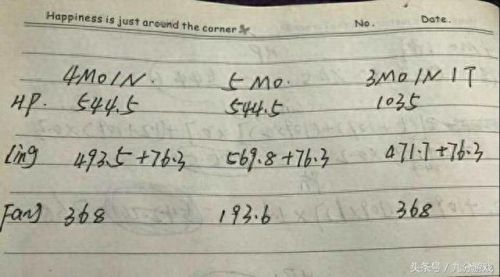 Happiness is just around the corner No. Date.
4MOIN. 5MO. 3MOIN1T
HP. 544.5 544.5 1035
ling 493.5+76.3 569.8+76.3 471.7+76.3
Fang 368 193.6 368
头条号／九分游戏